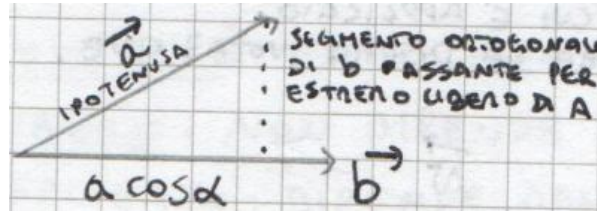 a
IPOTENUSA
SEGMENTO ORTOGONAL
DI b PASSANTE PER
ESTREMO LIBERO DI A
a cosα
b